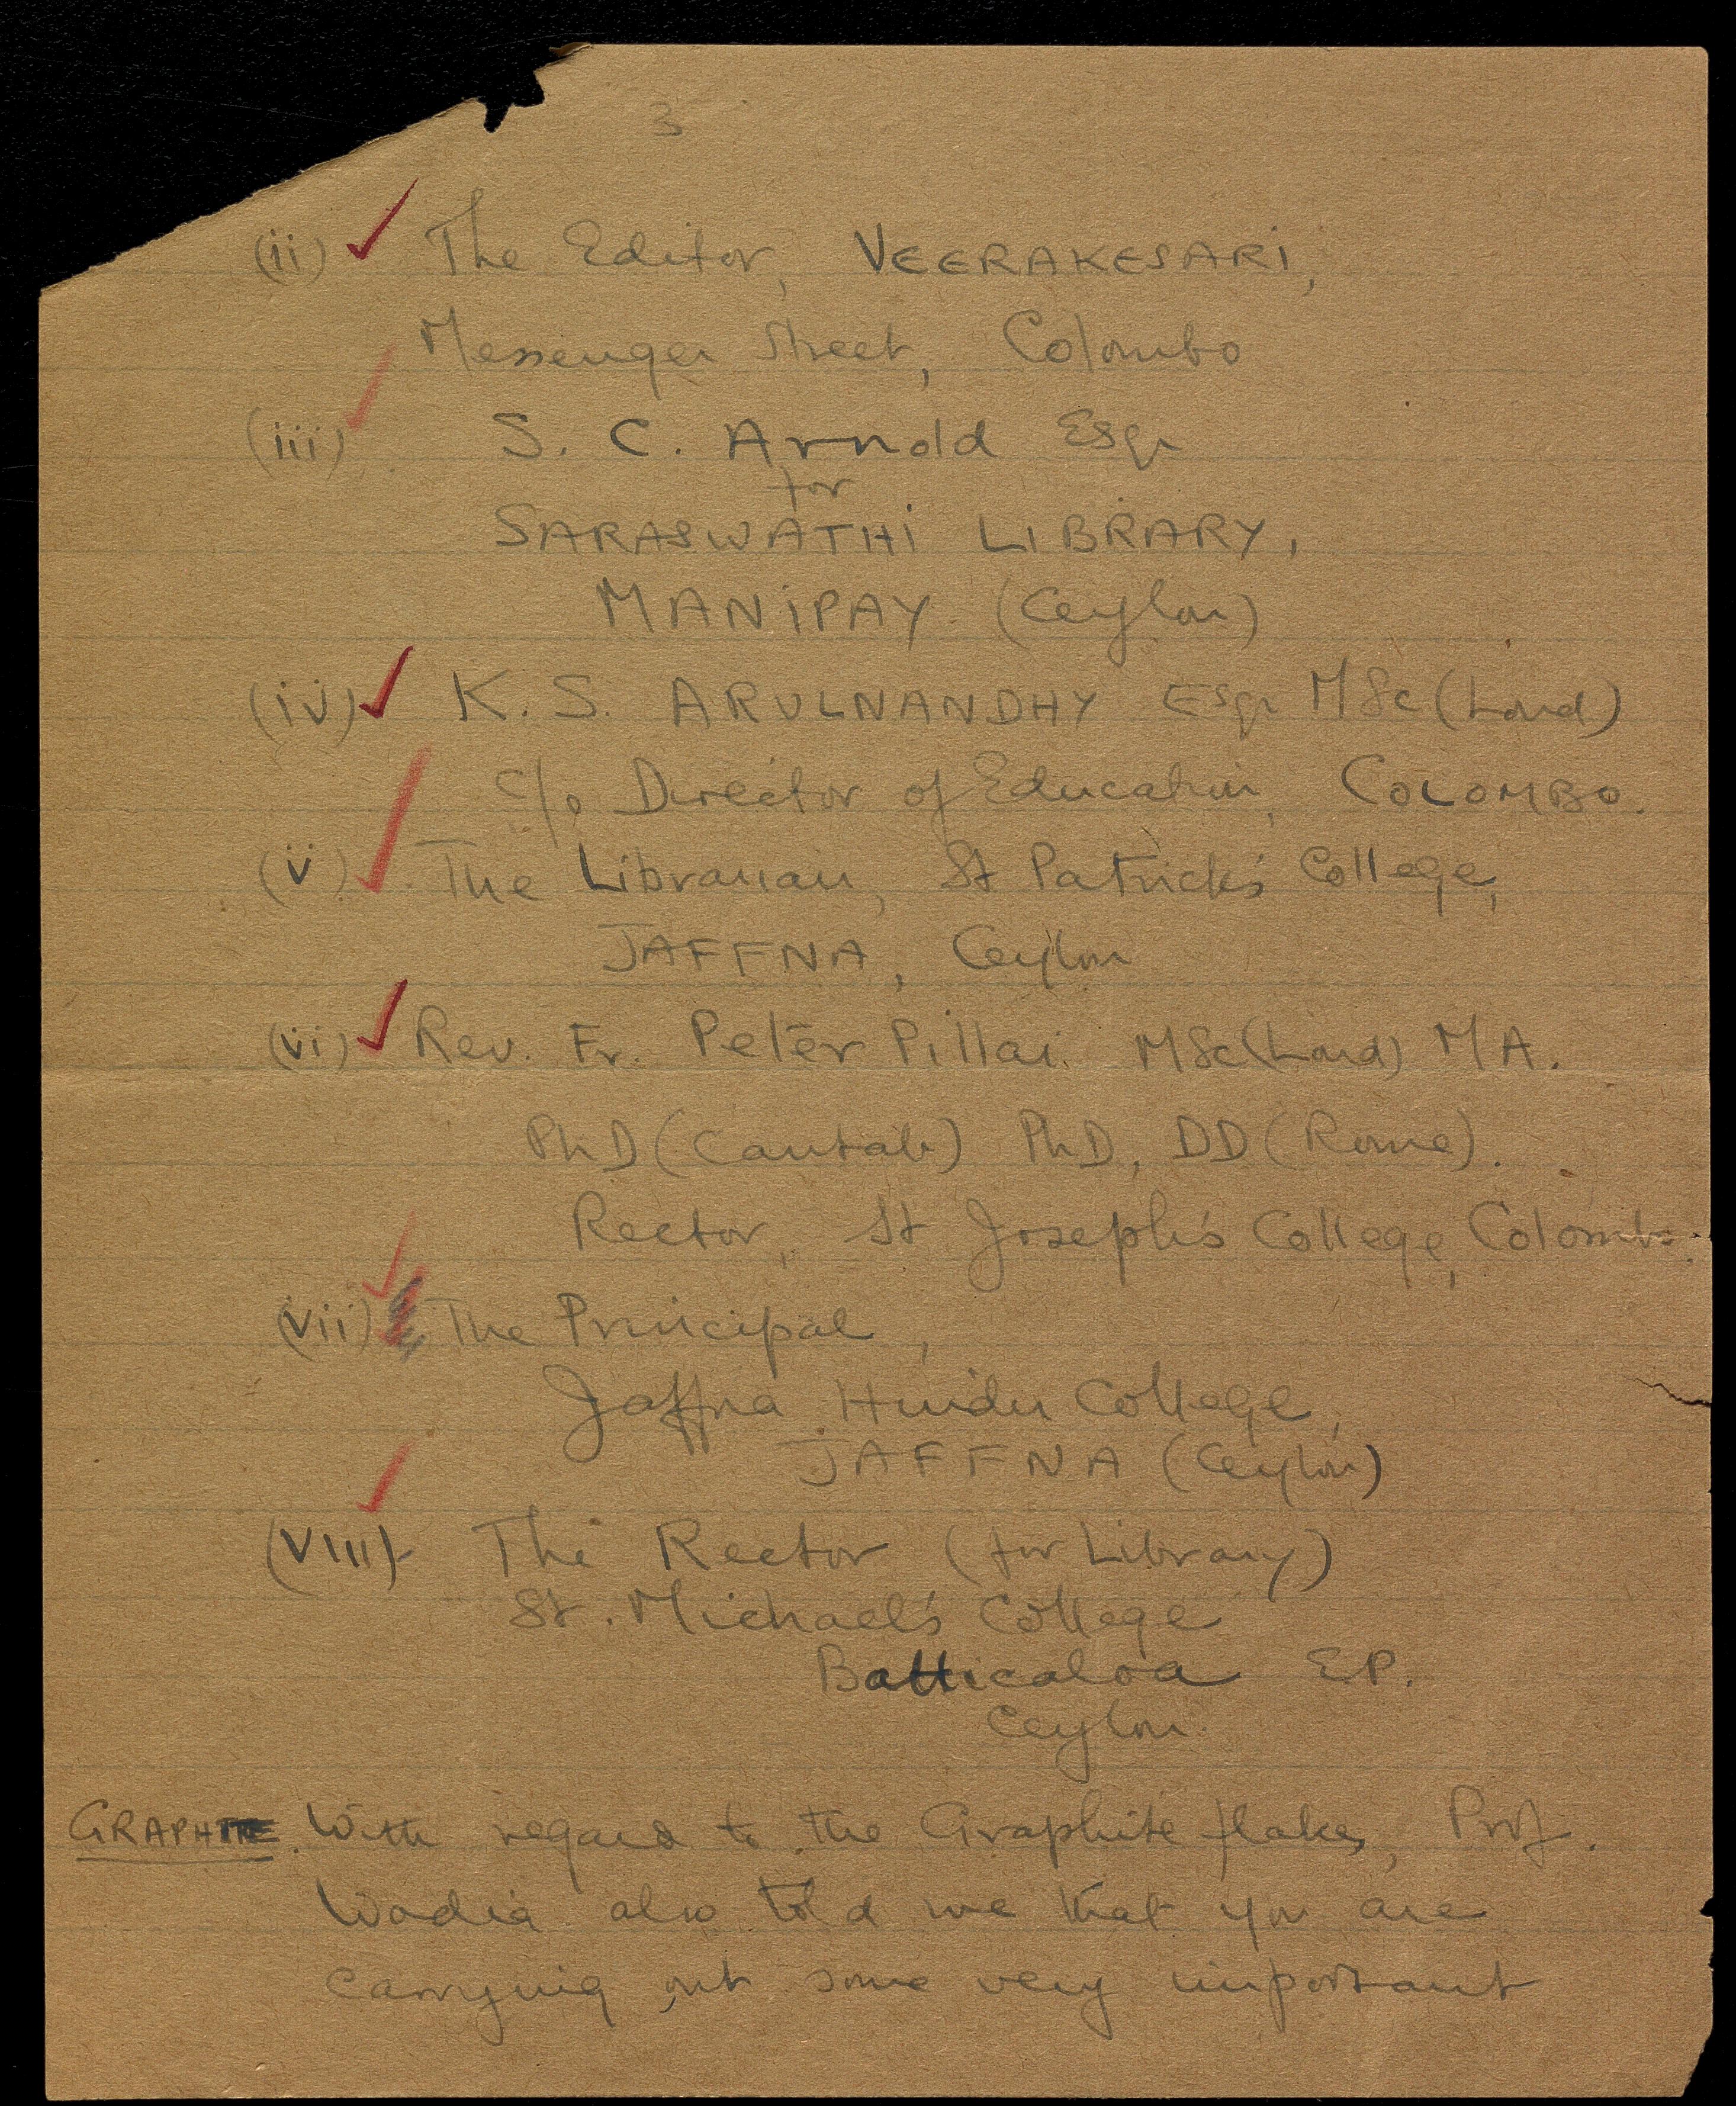 3
(ii) The Editor, VEERAKESARI,
Messenger Street, Colombo
(iii) S. C. Arnold Esqr
for
SARASWATHI LIBRARY,
MANIPAY (Ceylon)
(iv) K. S. ARULNANDHY Esqr MSc (Lond)
c/o Director of Education, COLOMBO.
(v) The Librarian, St Patrick's College,
JAFFNA, Ceylon
(vi) Rev. Fr. Peter Pillai MSc (Lond) M A.
PhD (Cantab) PhD, DD (Rome).
Rector, St Joseph's College, Colombo.
(vii) The Principal,
Jaffna Hindu College,
JAFFNA (Ceylon)
(viii) The Rector (for Library)
St. Michael's College
Batticaloa E.P.
Ceylon.
GRAPHITE. With regard to the Graphite flakes, Prof.
Wadia also told me that you are
carrying out some very important